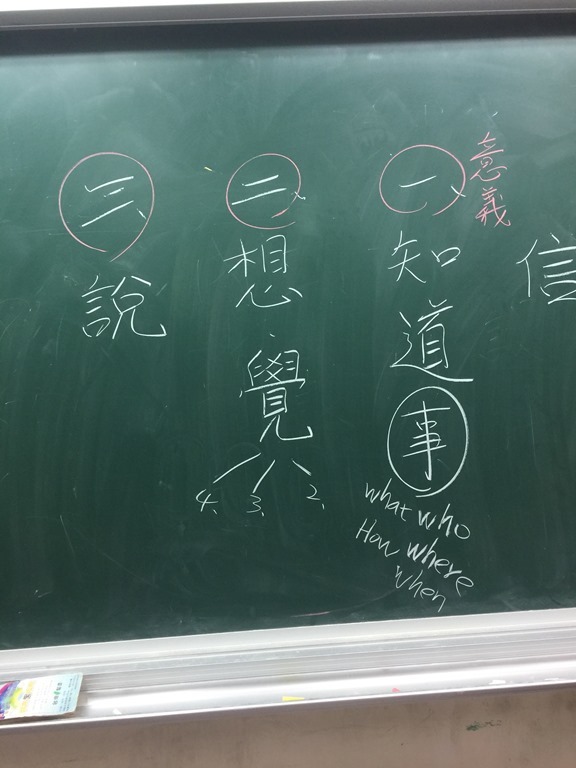 信
意義
一、知道事
what who
How where
when
二、想、覺
2、
3、
4、
三、說